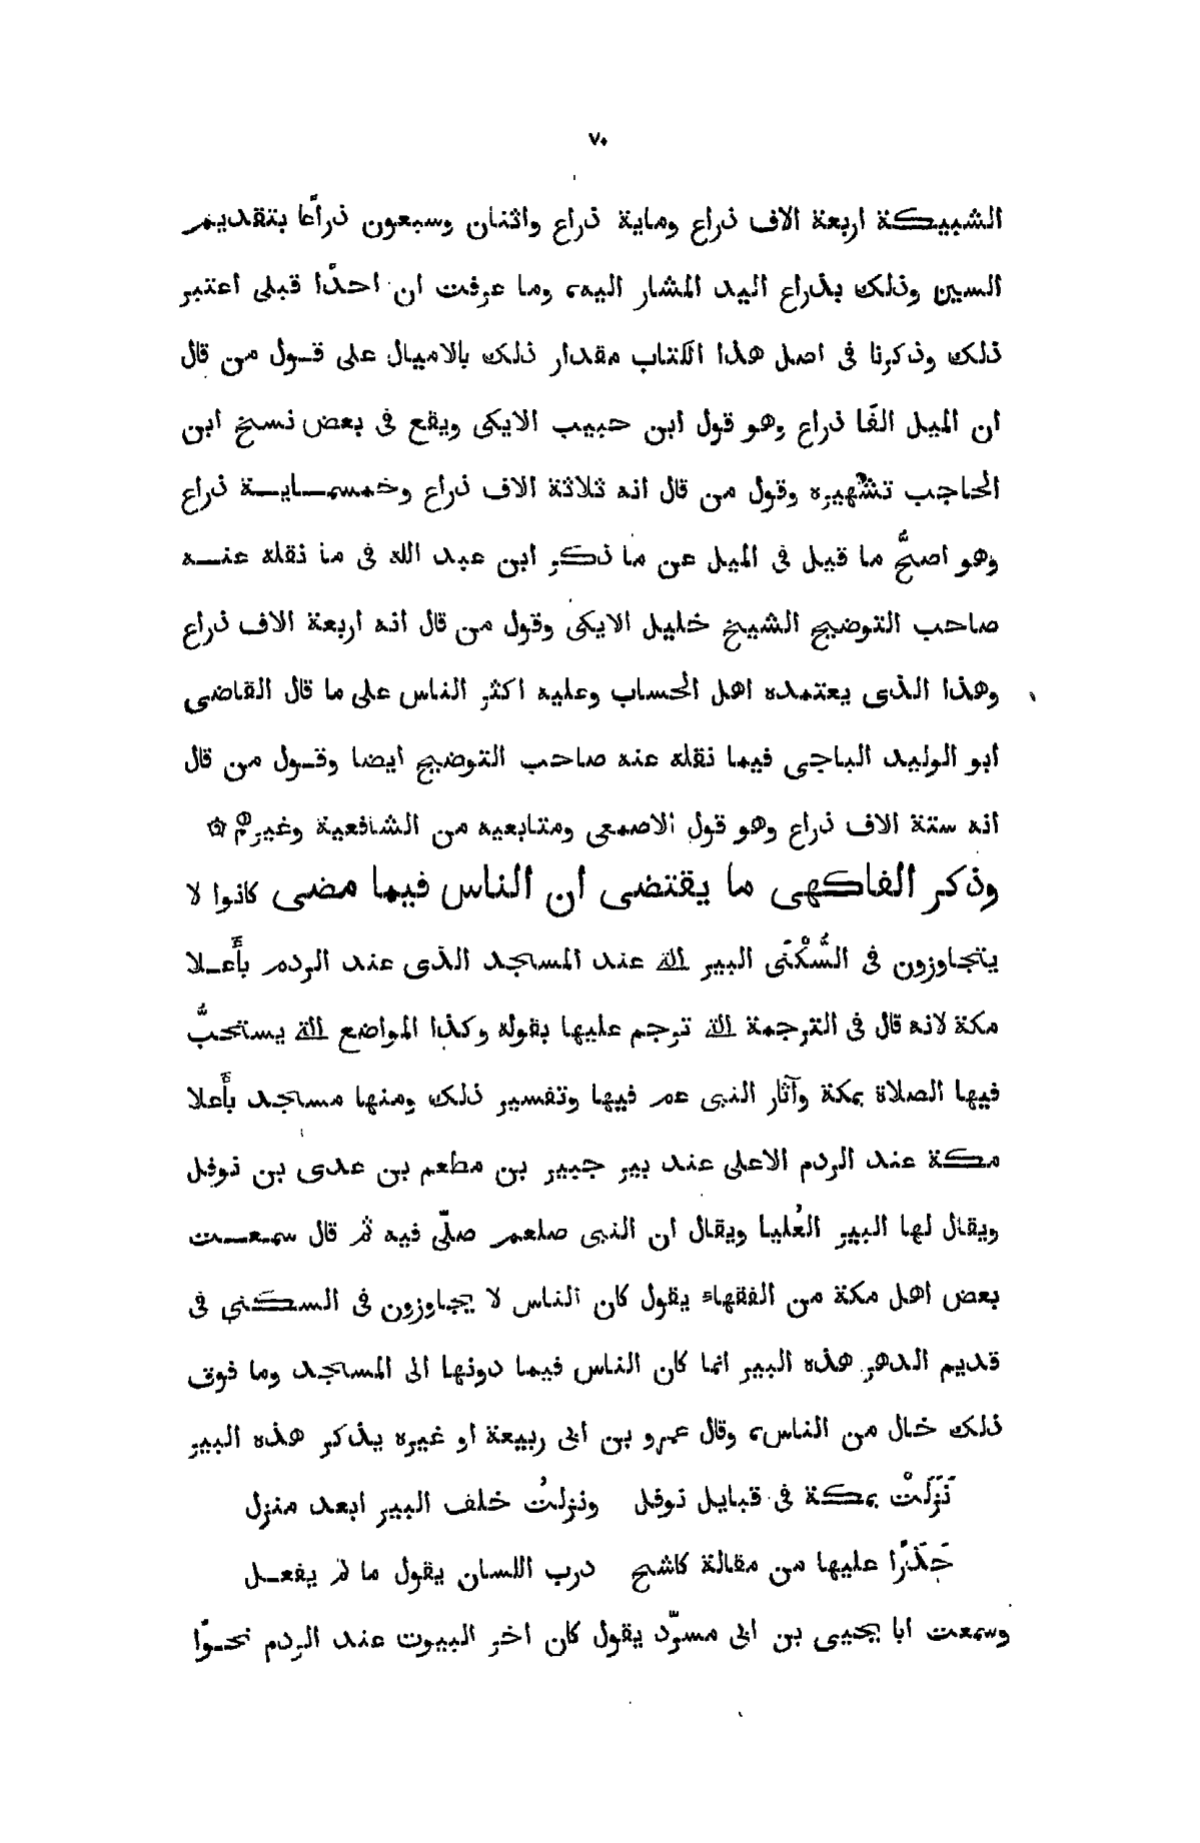 ٧٠
الشبيكة اربعة الاف ذراع وماية ذراع واثنان وسبعون ذراعًا بتقديم
السين وذلك بذراع اليد المشار اليه، وما عرفت ان احدًا قبلى اعتبر
ذلك وذكرنا فى اصل هذا الكتاب مقدار ذلك بالاميال على قول من قال
ان الميل الفَا ذراع وهو قول ابن حبيب الايكى ويقع فى بعض نسخ ابن
الحاجب تشهيره وقول من قال انه ثلاثة الاف ذراع وخمسماية ذراع
وهو اصحُّ ما قيل فى الميل عن ما ذكر ابن عبد الله فى ما نقله عنه
صاحب التوضيح الشيخ خليل الايكى وقول من قال انه اربعة الاف ذراع
وهذا الذى يعتمده اهل الحساب وعليه اكثر الناس على ما قال القاضى
ابو الوليد الباجى فيما نقله عنه صاحب التوضيح ايضا وقول من قال
انه ستة الاف ذراع وهو قول الاصمعى ومتابعيه من الشافعية وغيرهم ۞
وذكر الفاكهى ما يقتضى ان الناس فيما مضى كانوا لا
يتجاوزون فى السُّكْنَى البير للة عند المسجد الذى عند الردم بأَعلا
مكة لانه قال فى الترجمة للة ترجم عليها بقوله وكذا المواضع للة يستحبُّ
فيها الصلاة بمكة وآثار النبى عم فيها وتفسير ذلك ومنها مسجد بأَعلا
مكة عند الردم الاعلى عند بير جبير بن مطعم بن عدى بن نوفل
ويقال لها البير العُليا ويقال ان النبى صلعم صلّى فيه ثم قال سمعت
بعض اهل مكة من الفقهاء يقول كان الناس لا يجاوزون فى السكنى فى
قديم الدهر هذه البير انما كان الناس فيما دونها الى المسجد وما فوق
ذلك خال من الناس، وقال عمرو بن ابى ربيعة او غيره يذكر هذه البير
نَزَلَتْ بمكة فى قبايل نوفل ونزلتُ خلف البير ابعد منزل
حَذَرًا عليها من مقالة كاشح درب اللسان يقول ما لم يفعل
وسمعت ابا يحيى بن ابى مسرّد يقول كان اخر البيوت عند الردم نحوًا